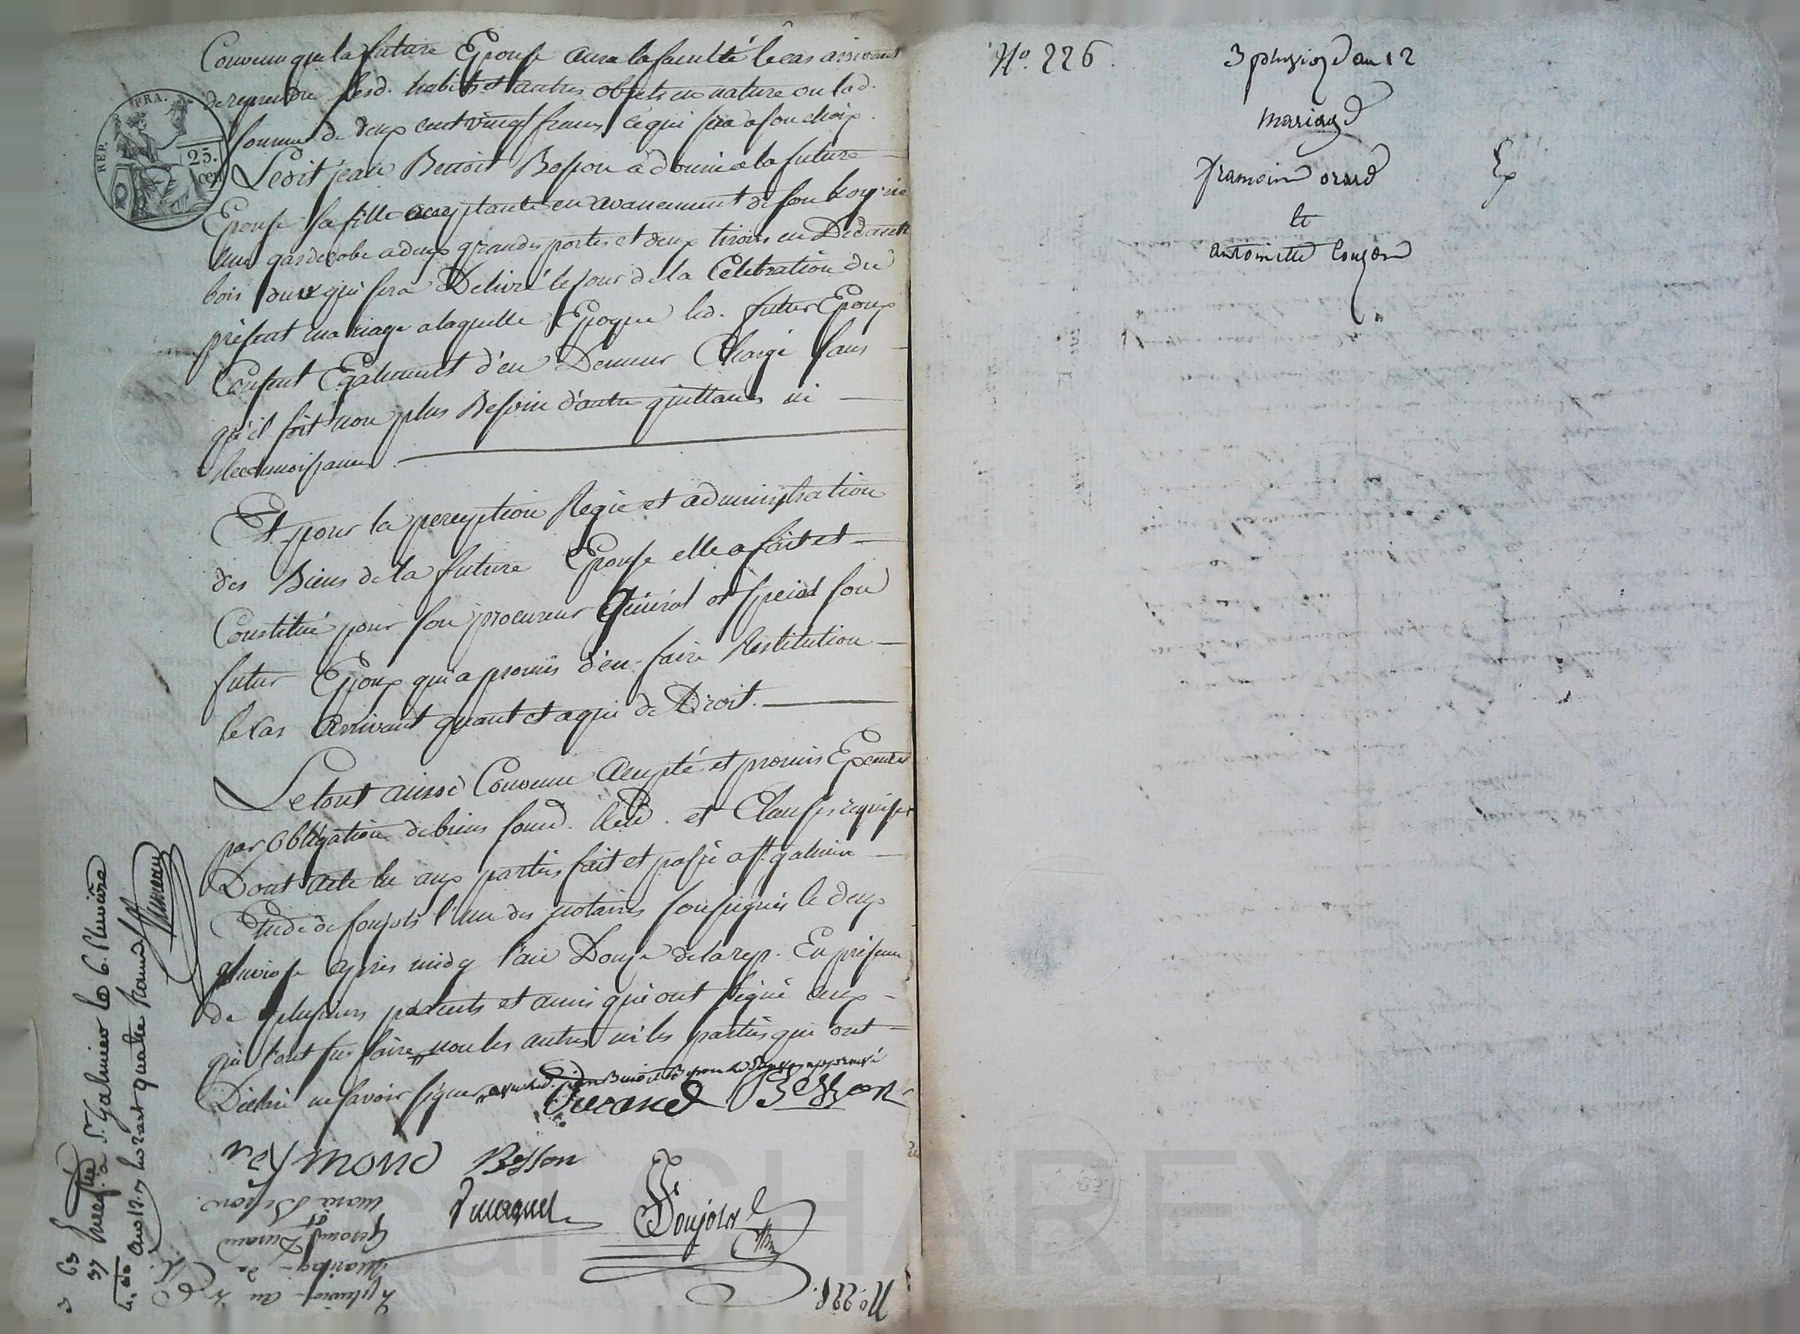 Convenu que la future Epouse aura la faculté le cas arrivant
de reprendre lesd. habits et autres objets en nature ou lad.
somme de deux cent vingt francs, ce qui sera a son choix.
Ledit jean Benoit Besson a donné a la future
Epouse sa fille acceptante en avancement de son hoyrie
une garderobe a deux grandes portes et deux tiroirs en Dedans
bois dur qui sera Delivré le jour de la Celebration du
présent mariage a laquelle Epoque led. futur Epoux
Consent Egalement d'en Demeurer Chargé sans
qu'il soit non plus Besoin d'autre quittance ni
Reconnoissance.
Et pour la perception Regie et administration
des Biens de la future Epouse elle a fait et
Constitué pour son procureur Général et special son
futur Epoux qui a promis d'en faire Restitution
le Cas Arrivant quant et a qui de Droit.
Le tout ainsi Convenu Accepté et promis Executer
par obligation de biens soumd. Rend. et Clauses requises
Dont acte lu aux parties fait et passé a St. galmier
Etude de Ponjols l'un des notaires soussignés le deux
pluviose après midy l'an Douze de la rep. En présence
de plusieurs parents et amis qui ont signé ceux
qui l'ont su faire, non les autres ni les parties qui ont
Déclaré ne savoir signer
approuvé
Durand Besson
reymond Besson
N°. 228.
Pluviose an 12
Mariage de
Durand
et
marie Besson
Enregistré à St. Galmier le 6. Pluviôse
an 12.
quatre francs
3 63
37
4. 00
REP. FRA.
25.
cen
N°. 226.
3 pluviose an 12
Mariage
et
antoinette
CHAREYRON